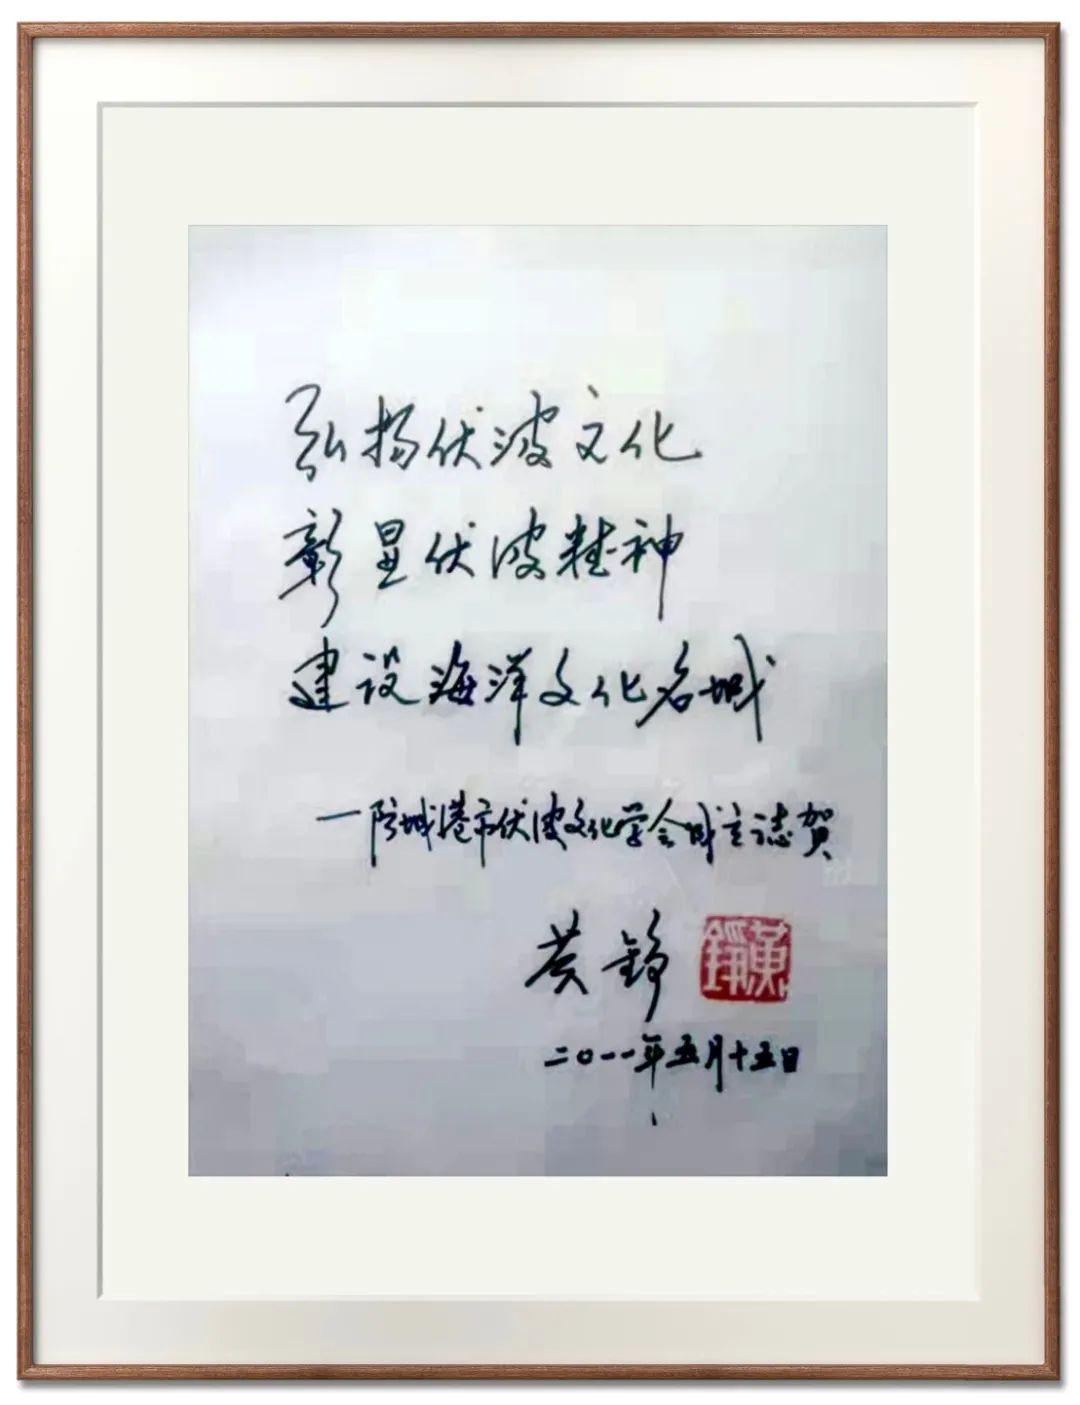 弘扬伏波文化
彰显伏波精神
建设海洋文化名城
一防城港市伏波文化学会成立誌贺
黄铮
黄铮
二〇一一年五月十五日